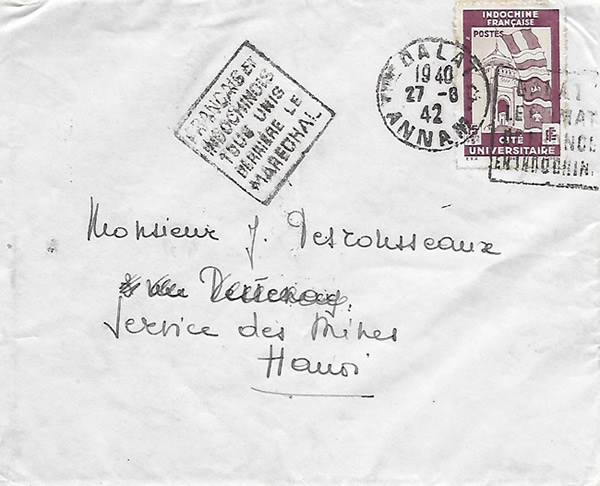 INDOCHINE
FRANÇAISE
POSTES
CITÉ
UNIVERSITAIRE
DALAT
1940
27-6
42
ANNAM
FRANÇAIS ET
INDOCHINOIS
TOUS UNIS
DERRIÈRE LE
MARECHAL
EN INDOCHINE
Monsieur J. Desrousseaux
Service des Mines
Hanoi